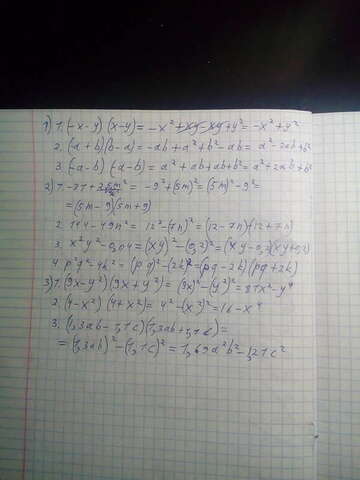 1) 1. (-x-y)(x-y) = -x² + xy - xy + y² = -x² + y²
2. (-a+b)(b-a) = -ab + a² + b² - ab = a² - 2ab + b²
3. (-a-b)(-a-b) = a² + ab + ab + b² = a² + 2ab + b²
2) 1. -81 + 25m² = -9² + (5m)² = (5m)² - 9² =
= (5m-9)(5m+9)
2. 144 - 49n² = 12² - (7n)² = (12-7n)(12+7n)
3. x²y² - 0,04 = (xy)² - (0,2)² = (xy-0,2)(xy+0,2)
4. p²q² - 4k² = (pq)² - (2k)² = (pq-2k)(pq+2k)
3) 1. (9x-y²)(9x+y²) = (9x)² - (y²)² = 81x² - y⁴
2. (4-x²)(4+x²) = 4² - (x²)² = 16 - x⁴
3. (1,3ab-1,1c)(1,3ab+1,1c) =
= (1,3ab)² - (1,1c)² = 1,69a²b² - 1,21c²